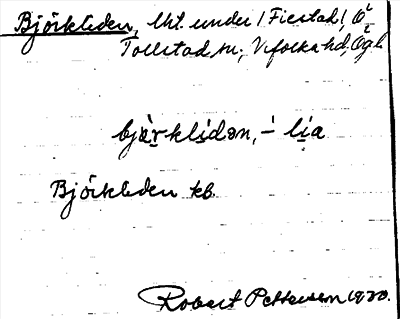 Björkleden, lht. under /Fiestad/, Ö
Tollstad sn., Vifolka hd, Ögl.
bjœ̀rklidən, -̀ lia
Björkleden kb.
Robert Pettersson 1930.